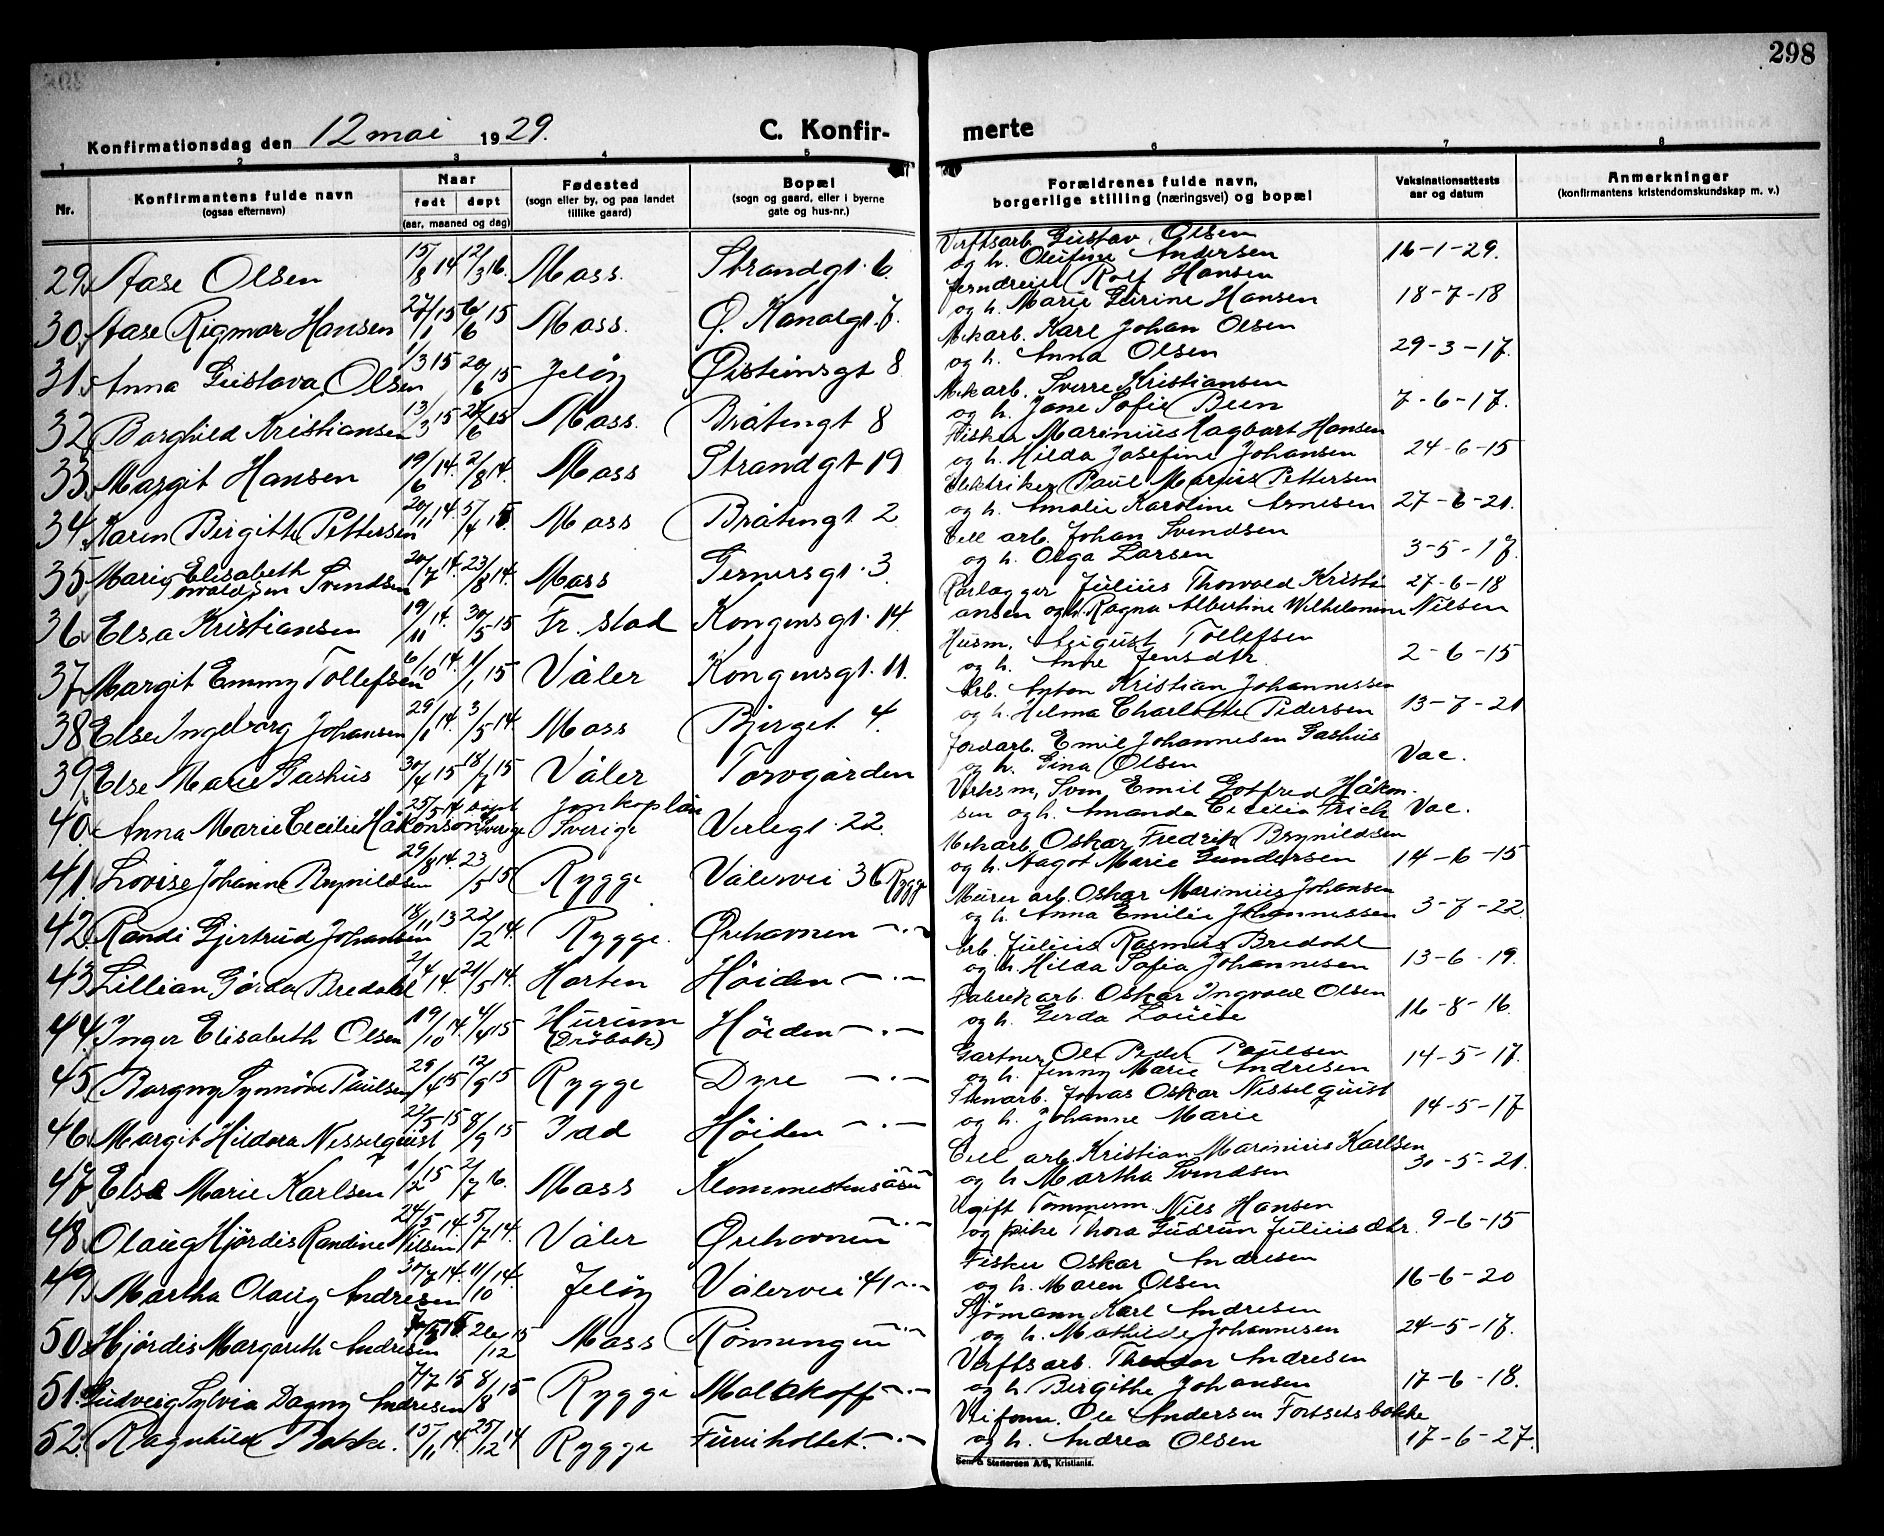 298
Konfirmationsdag den 12 mai 1929.
C. Konfir- merte
1 2 3 4 5 6 7 8
Nr.
Konfirmantens fulde navn
(ogsaa efternavn)
Naar
født døpt
(aar, maaned og dag)
Fødested
(sogn eller by, og paa landet
tillike gaard)
Bopæl
(sogn og gaard, eller i byerne
gate og hus-nr.)
Forældrenes fulde navn,
borgerlige stilling (næringsvei) og bopæl
Vaksinationsattests
aar og datum
Anmerkninger
(konfirmantens kristendomskundskap m. v.)
29. Aase Olsen 15/8 14 12/3 16. Moss. Strandgt. 6. Verftsarb. Gustav Olsen
og h. Olufine Andersen 16-1-29.
30. Aase Rigmor Hansen 27/1 15 6/6 15 Moss. Ø. Kanalgt. 7. Jerndreier Rolf Hansen
og h. Marie Gurine Hansen 18-7-18
31. Anna Gustava Olsen 1/3 15 20/6 15 Jeløy Øistensgt 8 Mek arb. Karl Johan Olsen
og h. Anna Olsen 29-3-17.
32. Borghild Kristiansen 13/3 15 /6 15 Moss. Bråtengt 8 Mek arb. Sverre Kristiansen
og h. Jane Sofie Been 7-6-17.
33. Margit Hansen 19/6 14. 2/8 14. Moss Strandgt 19 Fisker Marinius Hagbart Hansen
og h. Hilda Josefine Johansen 24-6-15
34. Karen Birgithe Pettersen 20/11 14. 5/4 15. Moss Bråtengt. 2 Elektriker Paul Marius Pettersen
og h. Amalie Karoline Arnesen 27-6-21.
35. Marie Elisabeth Svendsen 20/7 14. 23/8 14. Moss Gernersgt. 3 Cell arb. Johan Svendsen
og h. Olga Larsen 3-5-17.
36. Elsa Kristiansen 19/11 14. 30/5 15 Fr. stad Kongensgt. 14. Rørlegger Julius Thorvald Kristi
ansen og h. Ragna Albertine Wilhelmine Nilsen 27-6-18
37. Margit Emmy Tollefsen 6/10 14. 1/1 15 Våler Kongensgt. 11. Husm. August Tollefsen
og h. Anne Jensdtr. 2-6-15
38. Else Ingeborg Johansen 29/1 14. 3/5 14. Moss Bjerget 4. Arb. Anton Kristian Johannessen
og h. Helma Charlotte Pedersen 13-7-21
39. Else Marie Gashus 30/4 15 18/7 15 Våler Torvgården Jordarb. Emil Johannesen Gashus
og h. Gina Olsen Vac.
40. Anna Marie Cecilie Håkonson 25/5 14. døpt Sverige Jonkopslän
Sverige Verlegt. 22. Verksm. Sven Emil Gotfred Håkon-
sen og h. Amanda Cecilia Frich Vac.
41. Lovise Johanne Brynildsen 29/8 14. 23/5 15 Rygge Vålervei 36 Rygge Mekarb. Oskar Fredrik Brynildsen
og h. Aagot Marie Gundersen 14-6-15
42. Randi Gjertrud Johansen 18/11 13 22/2 14. Rygge. Ørehavnen -"- Murer arb. Oskar Marinius Johansen
og h. Anna Emilie Johannessen 3-7-22.
43. Lillian Gerda Bredahl 2/4 14. 21/5 14. Horten Høiden -"- Arb. Julius Rasmus Bredahl
og h. Hilda Sofia Johannesen 13-6-19.
44. Inger Elisabeth Olsen 19/10 14. 4/4 15 Hurum
(Drøbak) Høiden -"- Fabrikarb. Oskar Ingvald Olsen
og h. Gerda Louise 16-8-16.
45. Borgny Synnøve Paulsen 29/4 15 12/9 15 Rygge Dyre -"- Gartner Ole Peder Paulsen
og h. Jenny Marie Andresen 14-5-17.
46. Margit Hildora Nesselquist 22/5 15 8/9 15 Idd Høiden -"- Stenarb. Jonas Oskar Nesselquist
og h. Johanne Marie 14-5-17
47. Else Marie Karlsen 1/2 15 2/7 16. Moss Klommestensåsen Cell arb. Kristian Marinius Karlsen
og h Martha Svendsen 30-5-21.
48. Olaug Hjørdis Randine Nilsen 24/5 14. 5/7 14. Våler Ørehavnen -"- Ugift Tømmerm. Nils Hansen
og pike Thora Gudrun Juliusdtr. 9-6-15
49. Martha Olaug Andresen 30/7 14. 11/10 14. Jeløy Vålervei 41 -"- Fisker Oskar Andresen
og h. Maren Olsen 16-6-20
50. Hjørdis Margareth Andresen 26/12 15 Moss Rønningen -"- Sjømann Karl Andresen
og h. Mathilde Johannesen 24-5-17.
51. Gudveig Sylvia Dagny Andresen 7/7 15 8/8 15 Rygge Malakoff -"- Verftsarb. Theodor Andresen
og h. Birgithe Johansen 17-6-18.
52. Ragnhild Bakke. 15/11 14. 25/12 14 Rygge Furuholtet. -"- Veiform. Ole Andersen Fortsetsbakke
og h. Andrea Olsen 17-6-27.
Sem & Stenersen A/S, Kristiania.